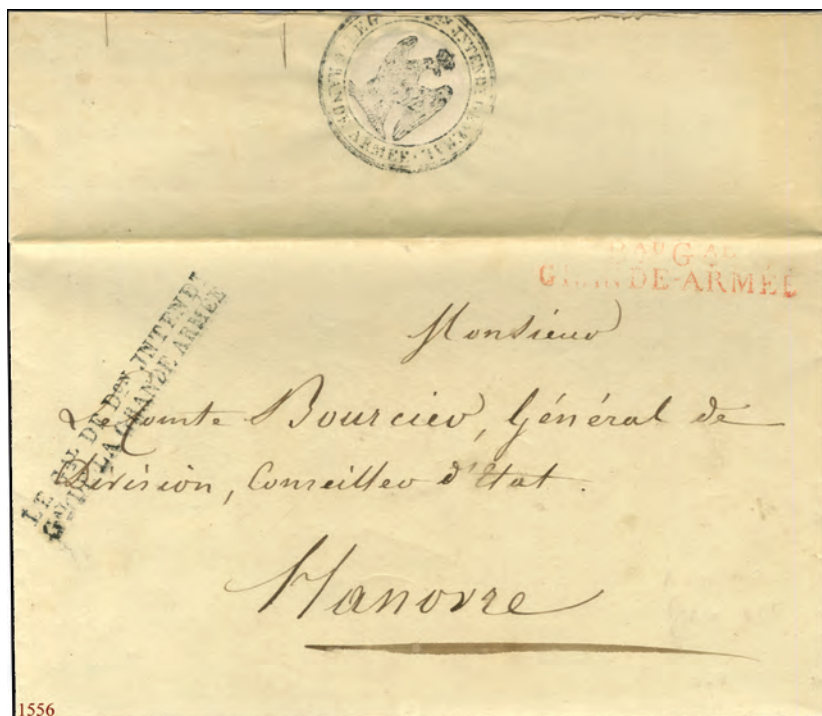 GRANDE ARMÉE · INTENDT GÉNÉRAL
Bau Gal
GRANDE-ARMÉE
LE Gal DE Don INTENDt
Gal DE LA GRANDE ARMÉE
Monsieur
Le Comte Bourcier, Général de
Division, Conseiller d'Etat.
Hanovre
1556